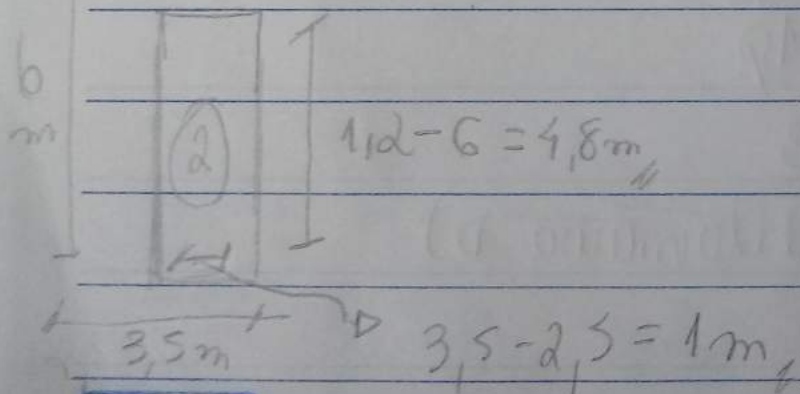 6
m
2
1,2-6=4,8m
3,5m
3,5-2,5=1m